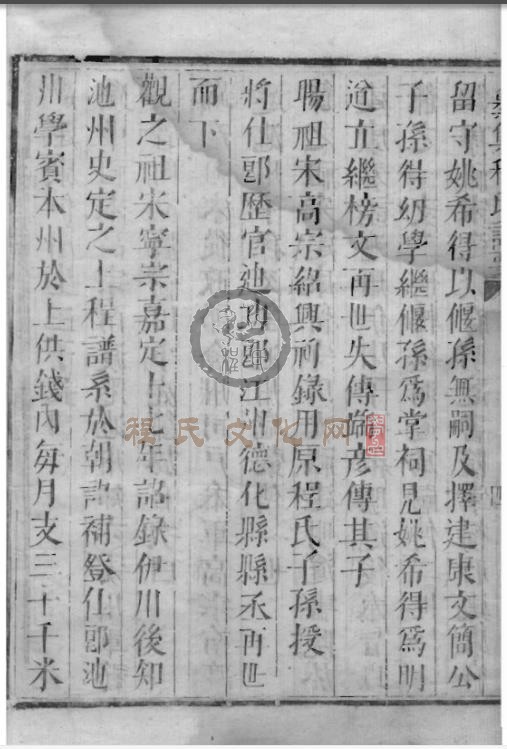 留守姚希得以偃孫無嗣及擇建康文簡公
子孫得幼學繼偃孫爲堂祠見姚希得爲明
道立繼榜文再世失傳 彦傳其子
暘祖宋高宗紹興初錄用原程氏子孫授
將仕郎歷官迪功郎江州德化縣縣丞再世
而下
觀之祖宋寧宗嘉定十七年詔錄伊川後知
池州史定之上程譜系於朝詔補登仕郎池
州學賓本州於上供錢內每月支三十千米
程氏文化网